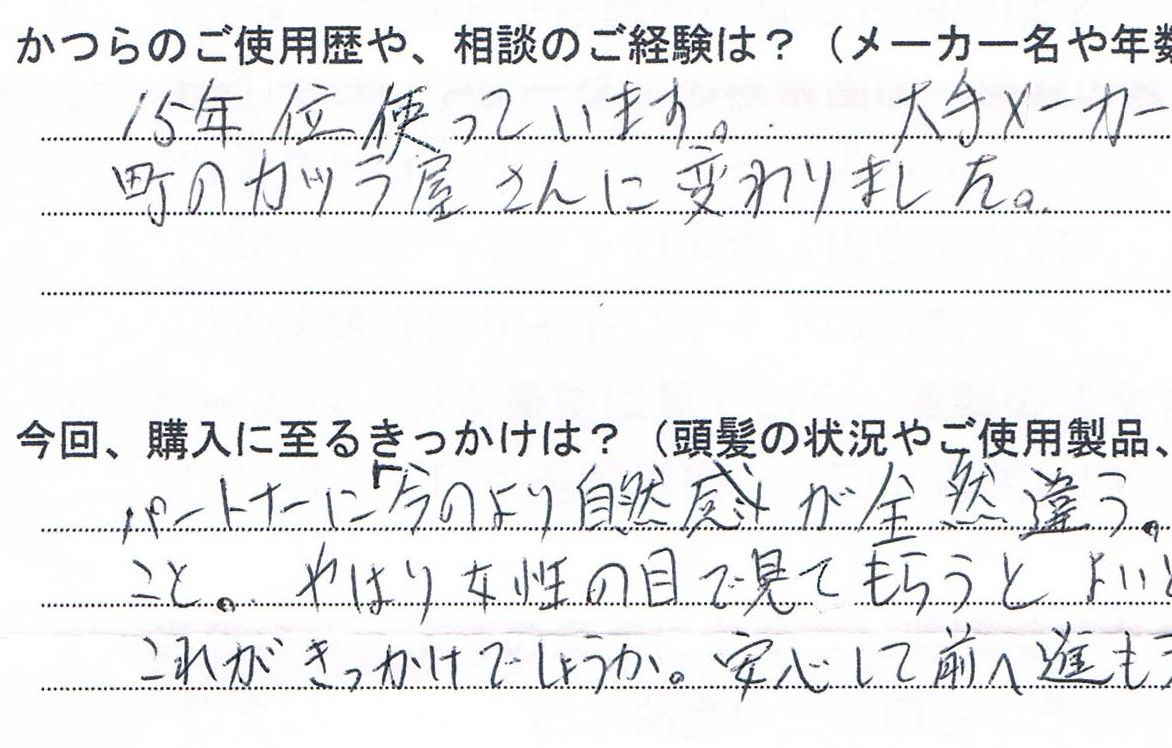 かつらのご使用歴や、相談のご経験は？（メーカー名や年数
15年位使っています。 大手メーカー
町のカツラ屋さんに変わりました。
今回、購入に至るきっかけは？（頭髪の状況やご使用製品、
パートナーに「今のより自然感が全然違う。
こと。やはり女性の目で見てもらうとよいと
これがきっかけでしょうか。安心して前へ進もう